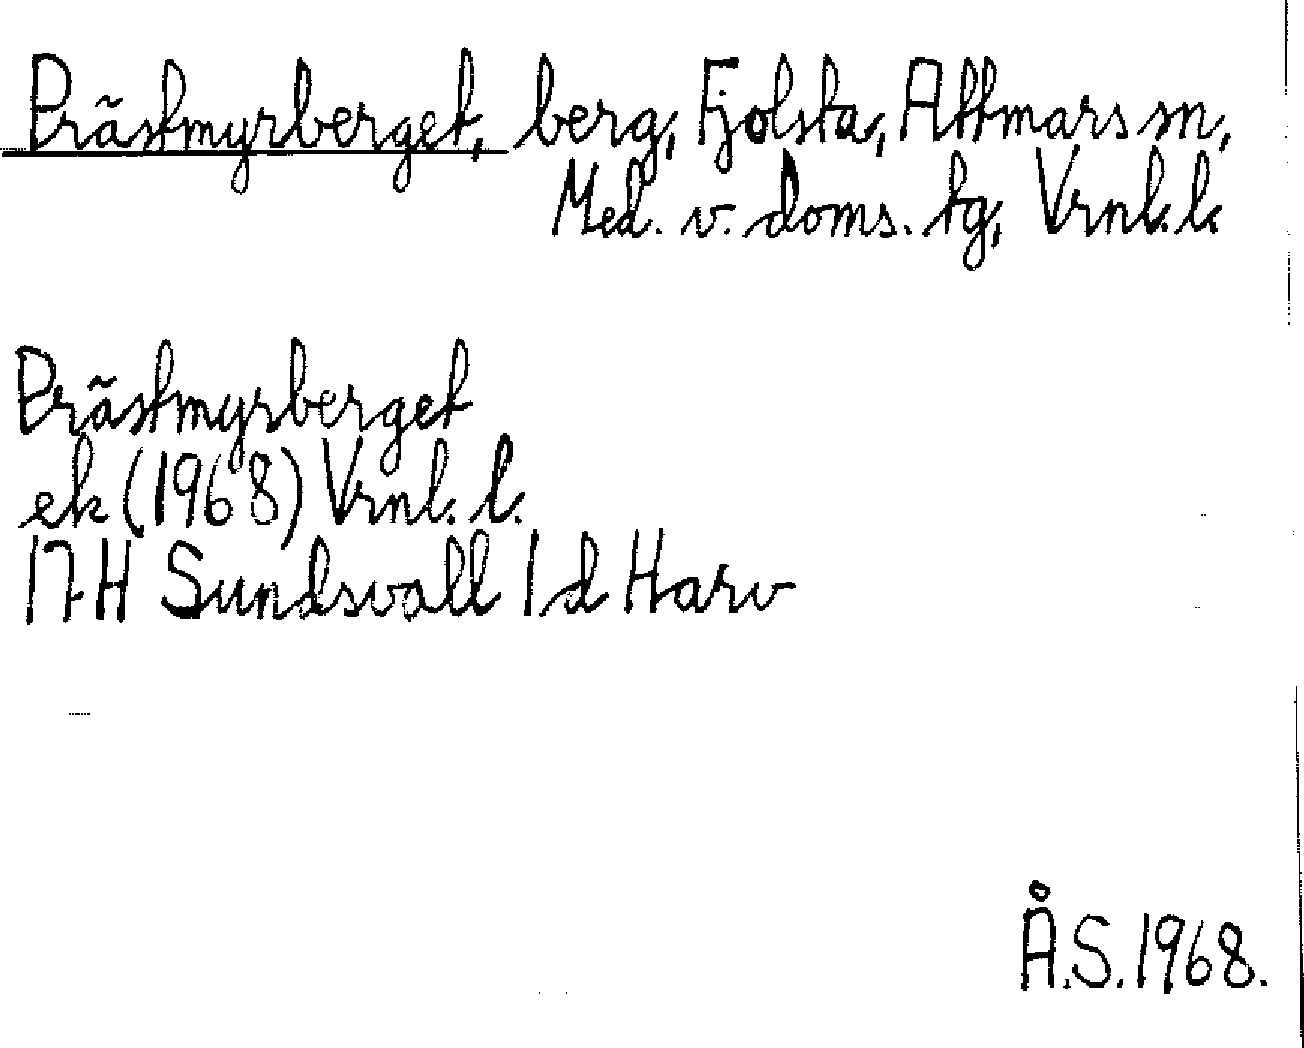 Prästmyrberget, berg, Fjolsta, Attmars sn,
Med. v. doms. tg, Vrnl. l.
Prästmyrberget
ek (1968) Vrnl. l.
17H Sundsvall 1 d Harv
Å.S. 1968.